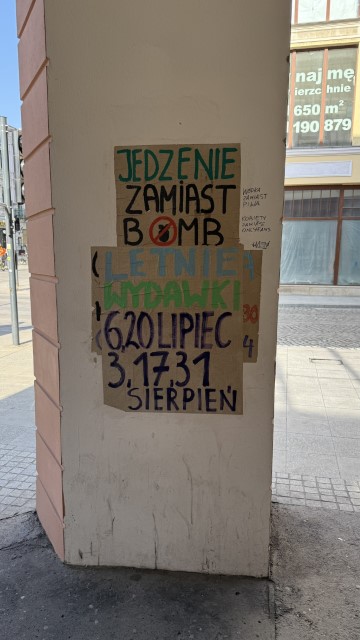 najmę
650 m²
190 879
JEDZENIE
ZAMIAST
BOMB
ZAMIAST
KOBIETY
ZAMIAST
LETNIE
WYDAWKI
6,20 LIPIEC
3,17,31
SIERPIEŃ
30
4